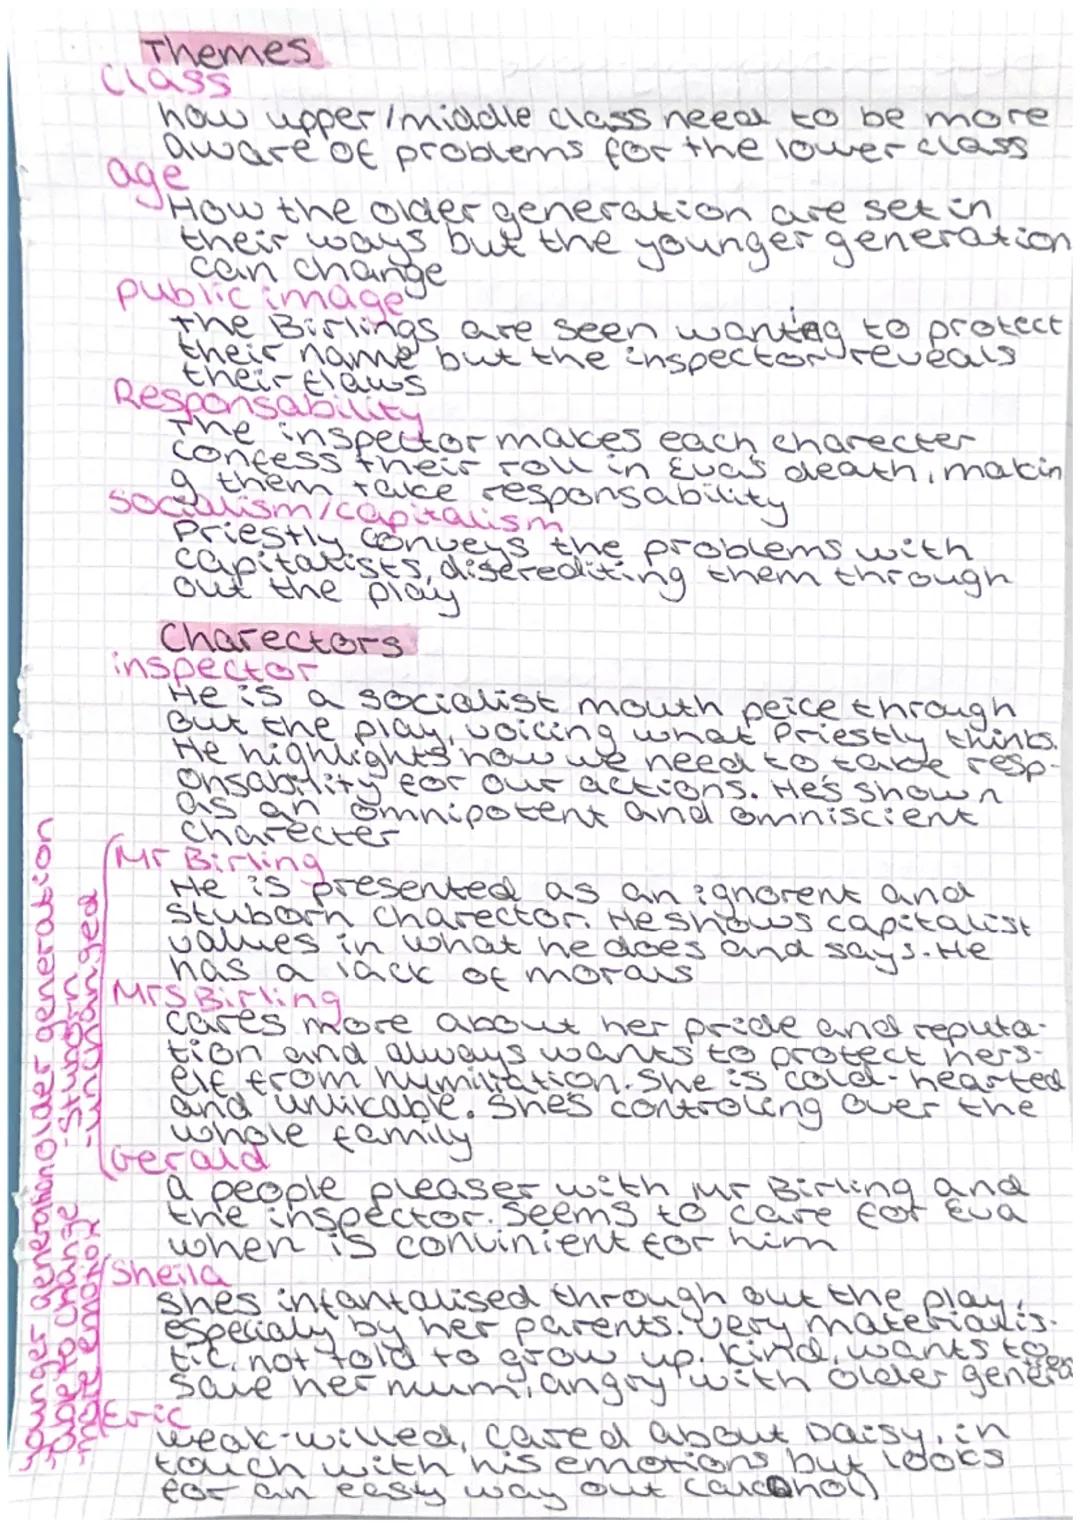 Themes
Class
how upper/middle class need to be more
aware of problems for the lower class
age
How the older generation are set in
their ways but the younger generation
can change
public image
the Birlings are seen wanting to protect
their name but the inspector reveals
their flaws
Responsability
The inspector makes each charecter
confess their roll in Eva's death, makin
g them take responsability
Socialism/capitalism
Priestly conveys the problems with
capitalists, discrediting them through
out the play
Charectors
inspector
He is a socialist mouth peice through
out the play, voicing what Priestly thinks.
He highlights how we need to take resp-
onsability for our actions. He's shown
as an omnipotent and omniscient
charecter
Mr Birling
He is presented as an ignorent and
stuborn charector. He shows capitalist
values in what he does and says. He
has a lack of morals
Mrs Birling
cares more about her pride and reputa-
tion and always wants to protect hers-
elf from humiliation. She is cold-hearted
and unlikable. Shes controling over the
whole family
Gerald
a people pleaser with Mr Birling and
the inspector. Seems to care for Eva
when is convinient for him
Sheila
shes infantalised through out the play,
especialy by her parents. Very materialis-
tic, not told to grow up. Kind, wants to
save her mum, angry with older genera
Eric
weak-willed, cared about Daisy, in
touch with his emotions but looks
for an easy way out (alcohol)
older generation
-stuborn
-unchanged
younger generation
-able to change
-more emotion